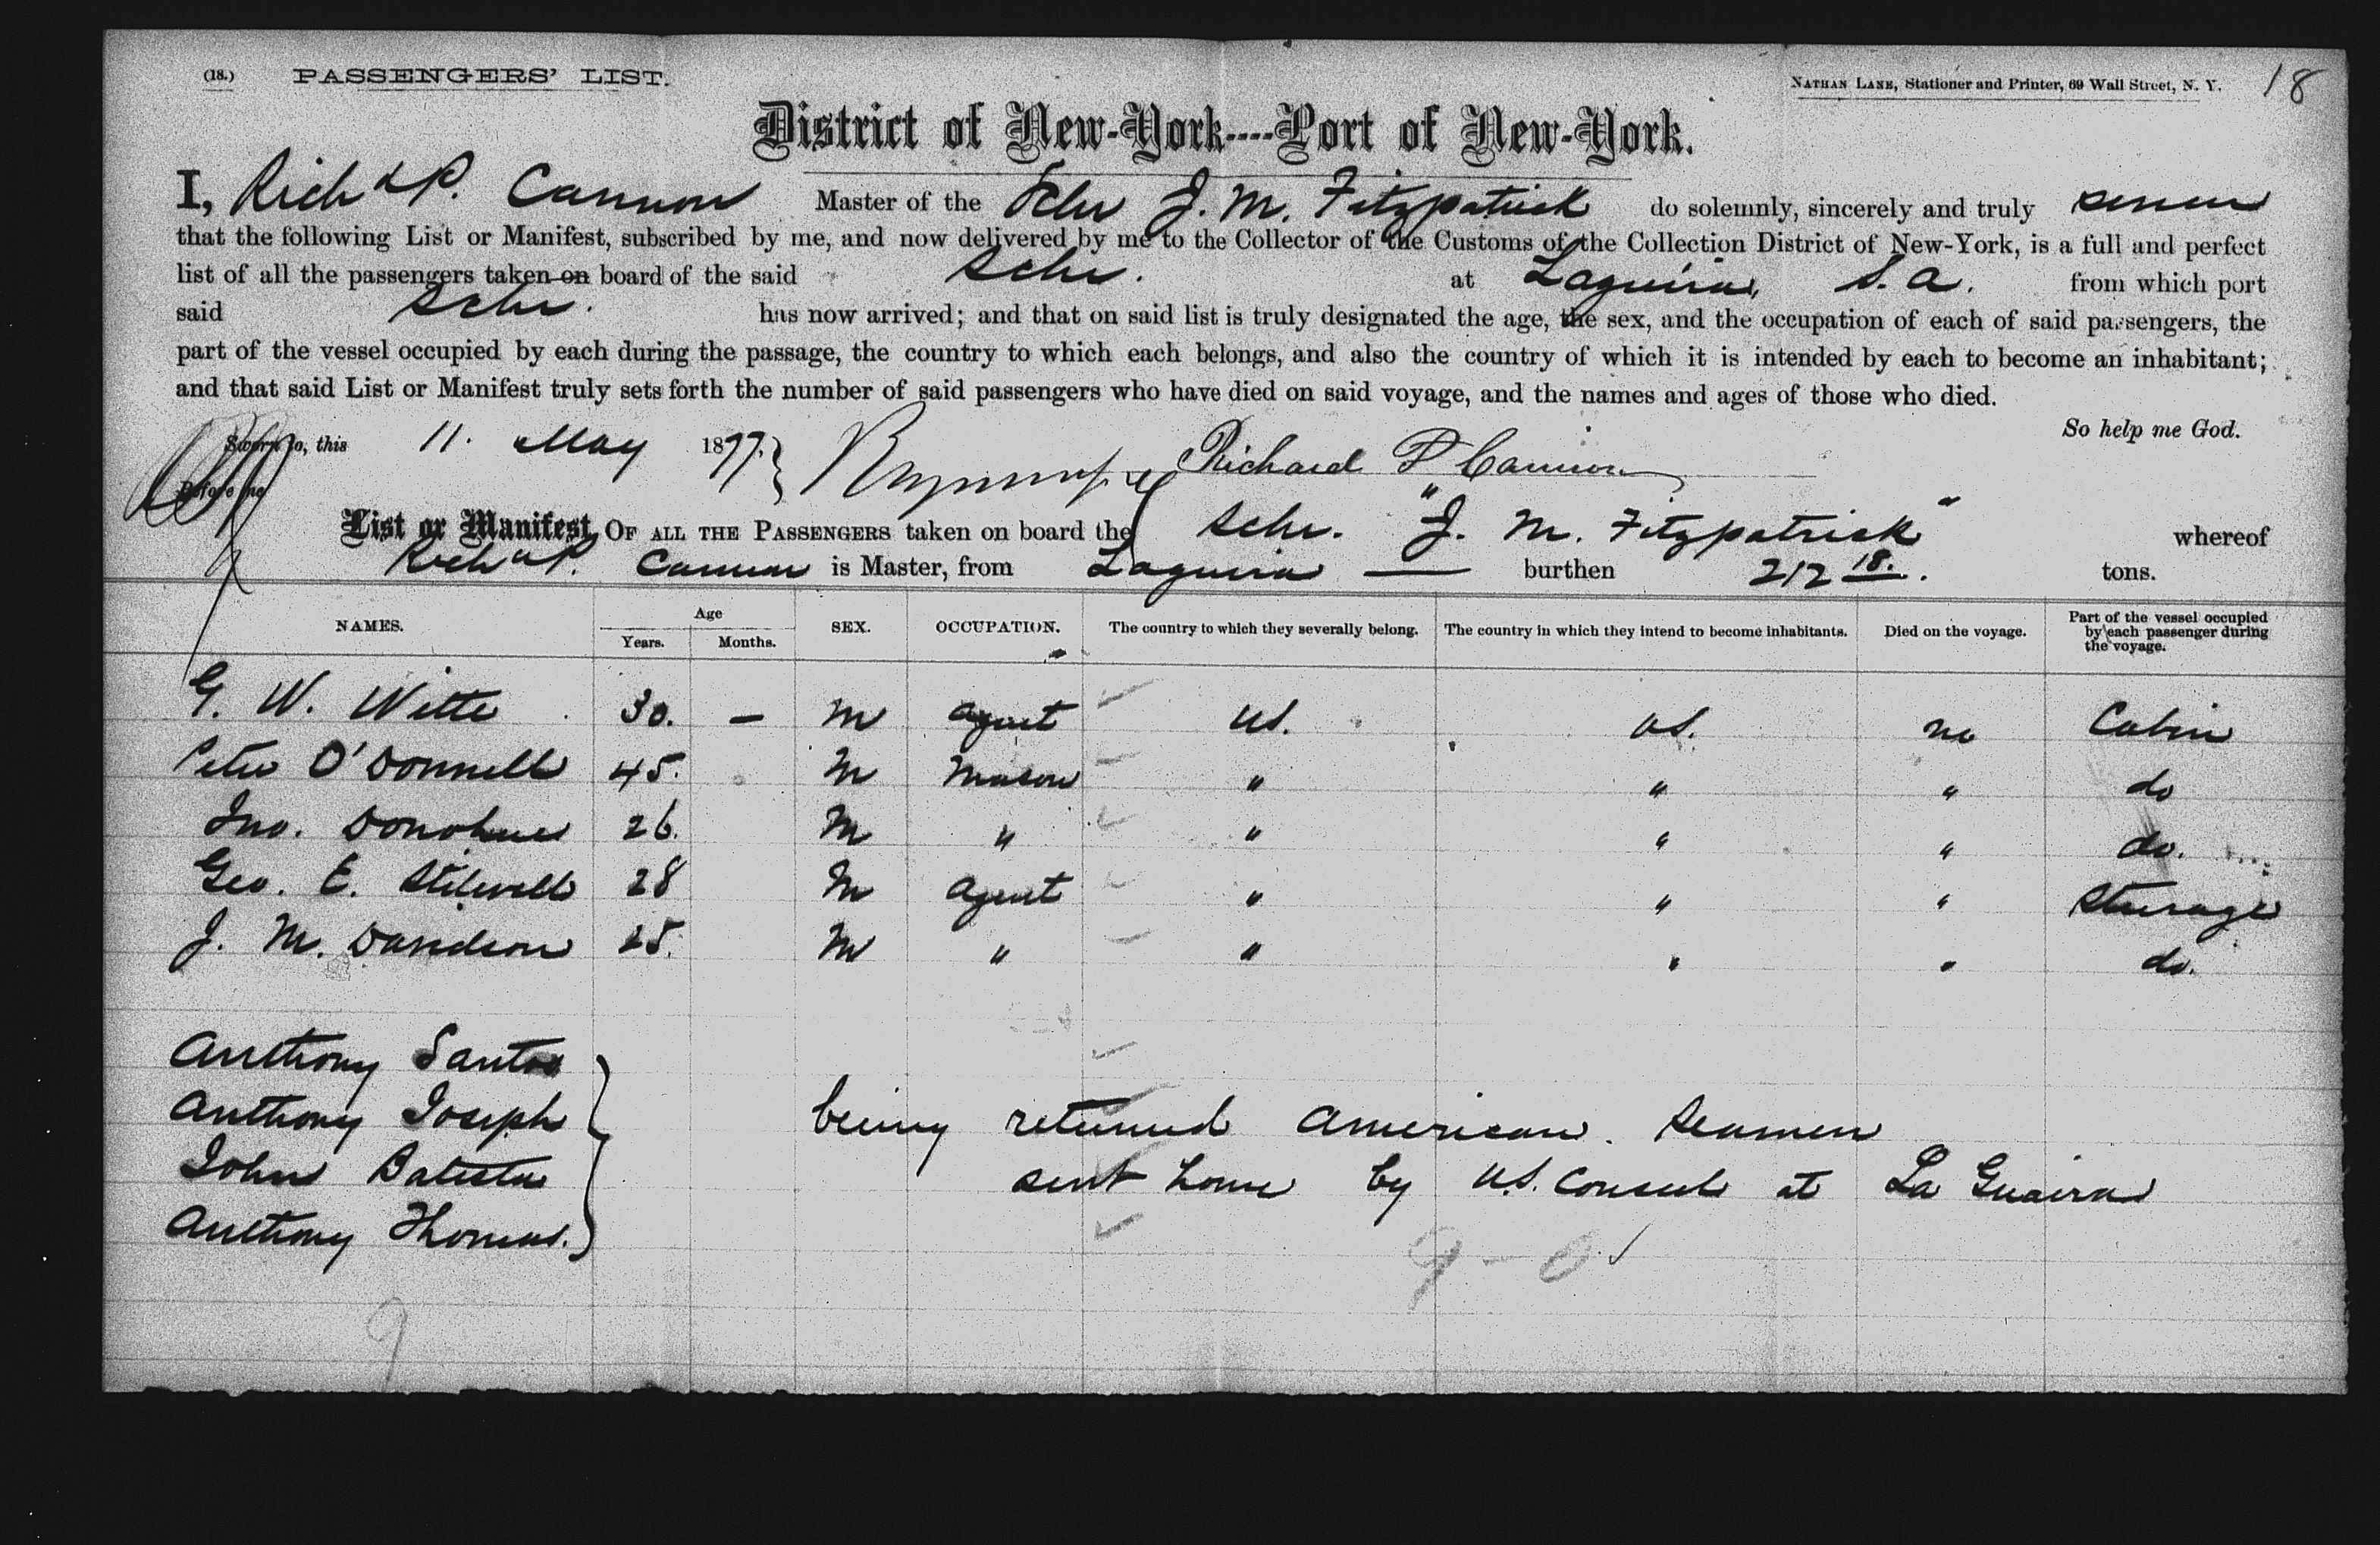 (18.) PASSENGERS' LIST. NATHAN LANE, Stationer and Printer, 69 Wall Street, N. Y. 18
District of New-York----Port of New-York.
I, Richd P. Cannon Master of the Schr J. M. Fitzpatrick do solemnly, sincerely and truly swear
that the following List or Manifest, subscribed by me, and now delivered by me to the Collector of the Customs of the Collection District of New-York, is a full and perfect
list of all the passengers taken on board of the said Schr. at Laguira, S. A. from which port
said Schr. has now arrived; and that on said list is truly designated the age, the sex, and the occupation of each of said passengers, the
part of the vessel occupied by each during the passage, the country to which each belongs, and also the country of which it is intended by each to become an inhabitant;
and that said List or Manifest truly sets forth the number of said passengers who have died on said voyage, and the names and ages of those who died.
So help me God.
Sworn to, this 11. May 1877. Richard P Cannon
Before me
List or Manifest OF ALL THE PASSENGERS taken on board the Schr. "J. M. Fitzpatrick" whereof
Richd P. Cannon is Master, from Laguira — burthen 212 18. tons.
NAMES. Age Years. Months. SEX. OCCUPATION. The country to which they severally belong. The country in which they intend to become inhabitants. Died on the voyage. Part of the vessel occupied by each passenger during the voyage.
G. W. Witte 30. — M agent US. US. no Cabin
Peter O'Donnell 45. M Mason " " " do
Jno. Donohue 26. M " " " " do.
Geo. E. Stilwell 28 M Agent " " " Steerage
J. M. Davidson 25. M " " " " do.
Anthony Santos
Anthony Joseph being returned American Seamen
John Batista sent home by U.S. Consul at La Guaira
Anthony Thomas.
9 - 0
9